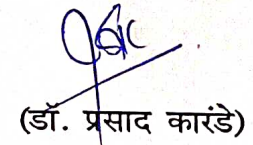 (डॉ. प्रसाद कारंडे)